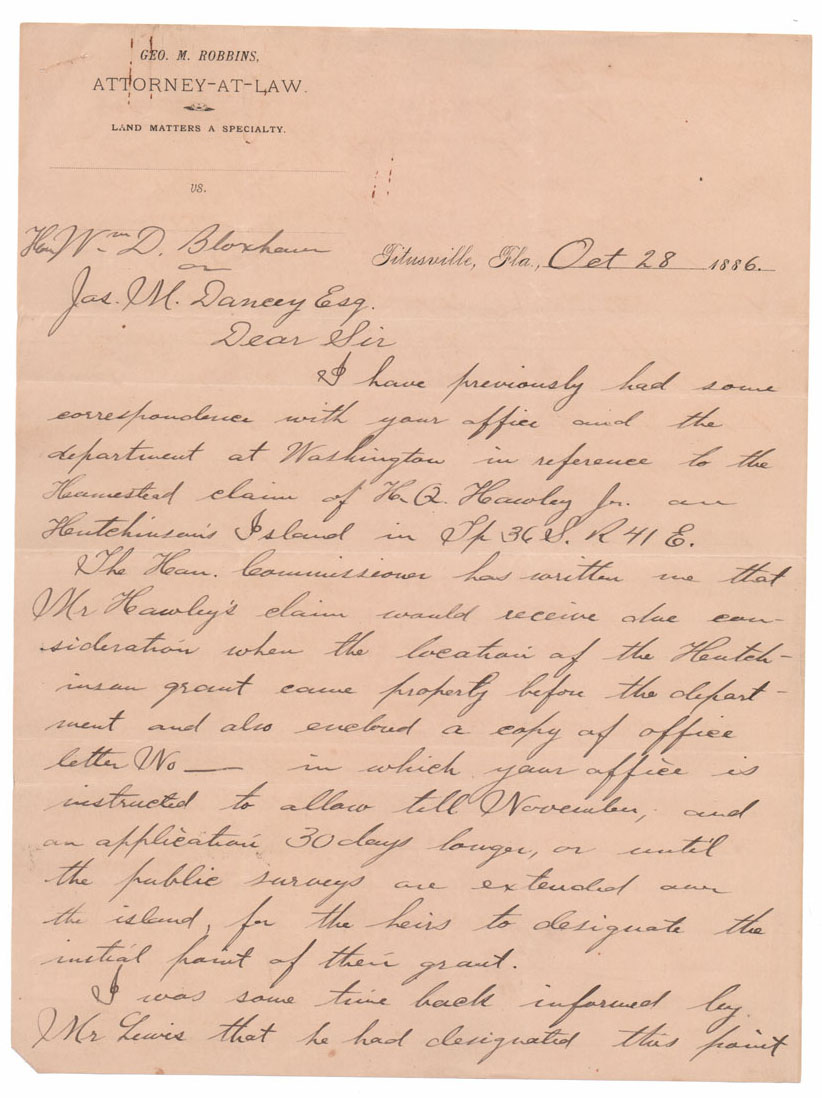 GEO. M. ROBBINS,
ATTORNEY-AT-LAW.
LAND MATTERS A SPECIALTY.
vs.
Hon Wm D. Bloxham
or
Titusville, Fla., Oct 28 1886.
Jas. M. Dancey Esq.
Dear Sir
I have previously had some
correspondence with your office and the
department at Washington in reference to the
Homestead claim of H. Q. Hawley Jr. on
Hutchinson's Island in Tp 36 S. R 41 E.
The Hon. Commissioner has written me that
Mr Hawley's claim would receive due con-
sideration when the location of the Hutch-
inson grant came properly before the depart-
ment and also enclosed a copy of office
letter No — in which your office is
instructed to allow till November, and
on application 30 days longer, or until
the public surveys are extended over
the island, for the heirs to designate the
initial point of their grant.
I was some time back informed by
Mr Lewis that he had designated this point